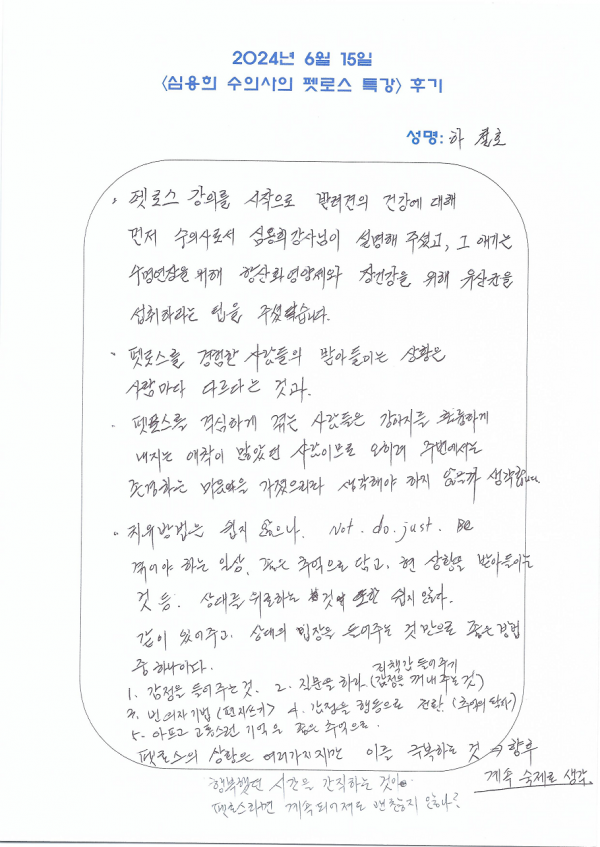 2024년 6월 15일
<심용희 수의사의 펫로스 특강> 후기
성명: 하 철호
· 펫로스 강의를 시작으로 반려견의 건강에 대해
먼저 수의사로서 심용희강사님이 설명해 주셨고, 그 얘기는
수명연장을 위해 항산화영양제와 장건강을 위해 유산균을
섭취하라는 팁을 주셨습니다.
· 펫로스를 경험한 사람들의 받아들이는 상황은
사람마다 다르다는 것과.
· 펫로스를 극심하게 겪는 사람들은 강아지를
내지는 애착이 많았던 사람이므로 오히려 주변에서는
존경하는 마음을 가졌으리라 생각해야 하지 않을까 생각합니다
· 치유방법은 쉽지 않으나. Not. do. just. Be
겪어야 하는 일상, 좋은 추억으로 담고, 현 상황을 받아들이는
것 등. 상대를 위로하는 것이 또한 쉽지 않다.
같이 있어주고. 상대의 입장을 들어주는 것만으로 좋은 방법
중 하나이다.
죄책감 들어주기
1. 감정을 들어주는 것. 2. 질문을 하라 (감정을 꺼내 주는 것)
3. 빈의자 기법 (편지쓰기) 4. 감정을 행동으로 전환. (추억의 )
5. 아프고 고통스런 기억을 좋은 추억으로.
펫로스의 상황은 여러가지지만 이를 극복하는 것 → 향후
계속 숙제로 생각.
행복했던 시간을 간직하는 것이
펫로스라면 계속되어져도 괜찮지 않나?